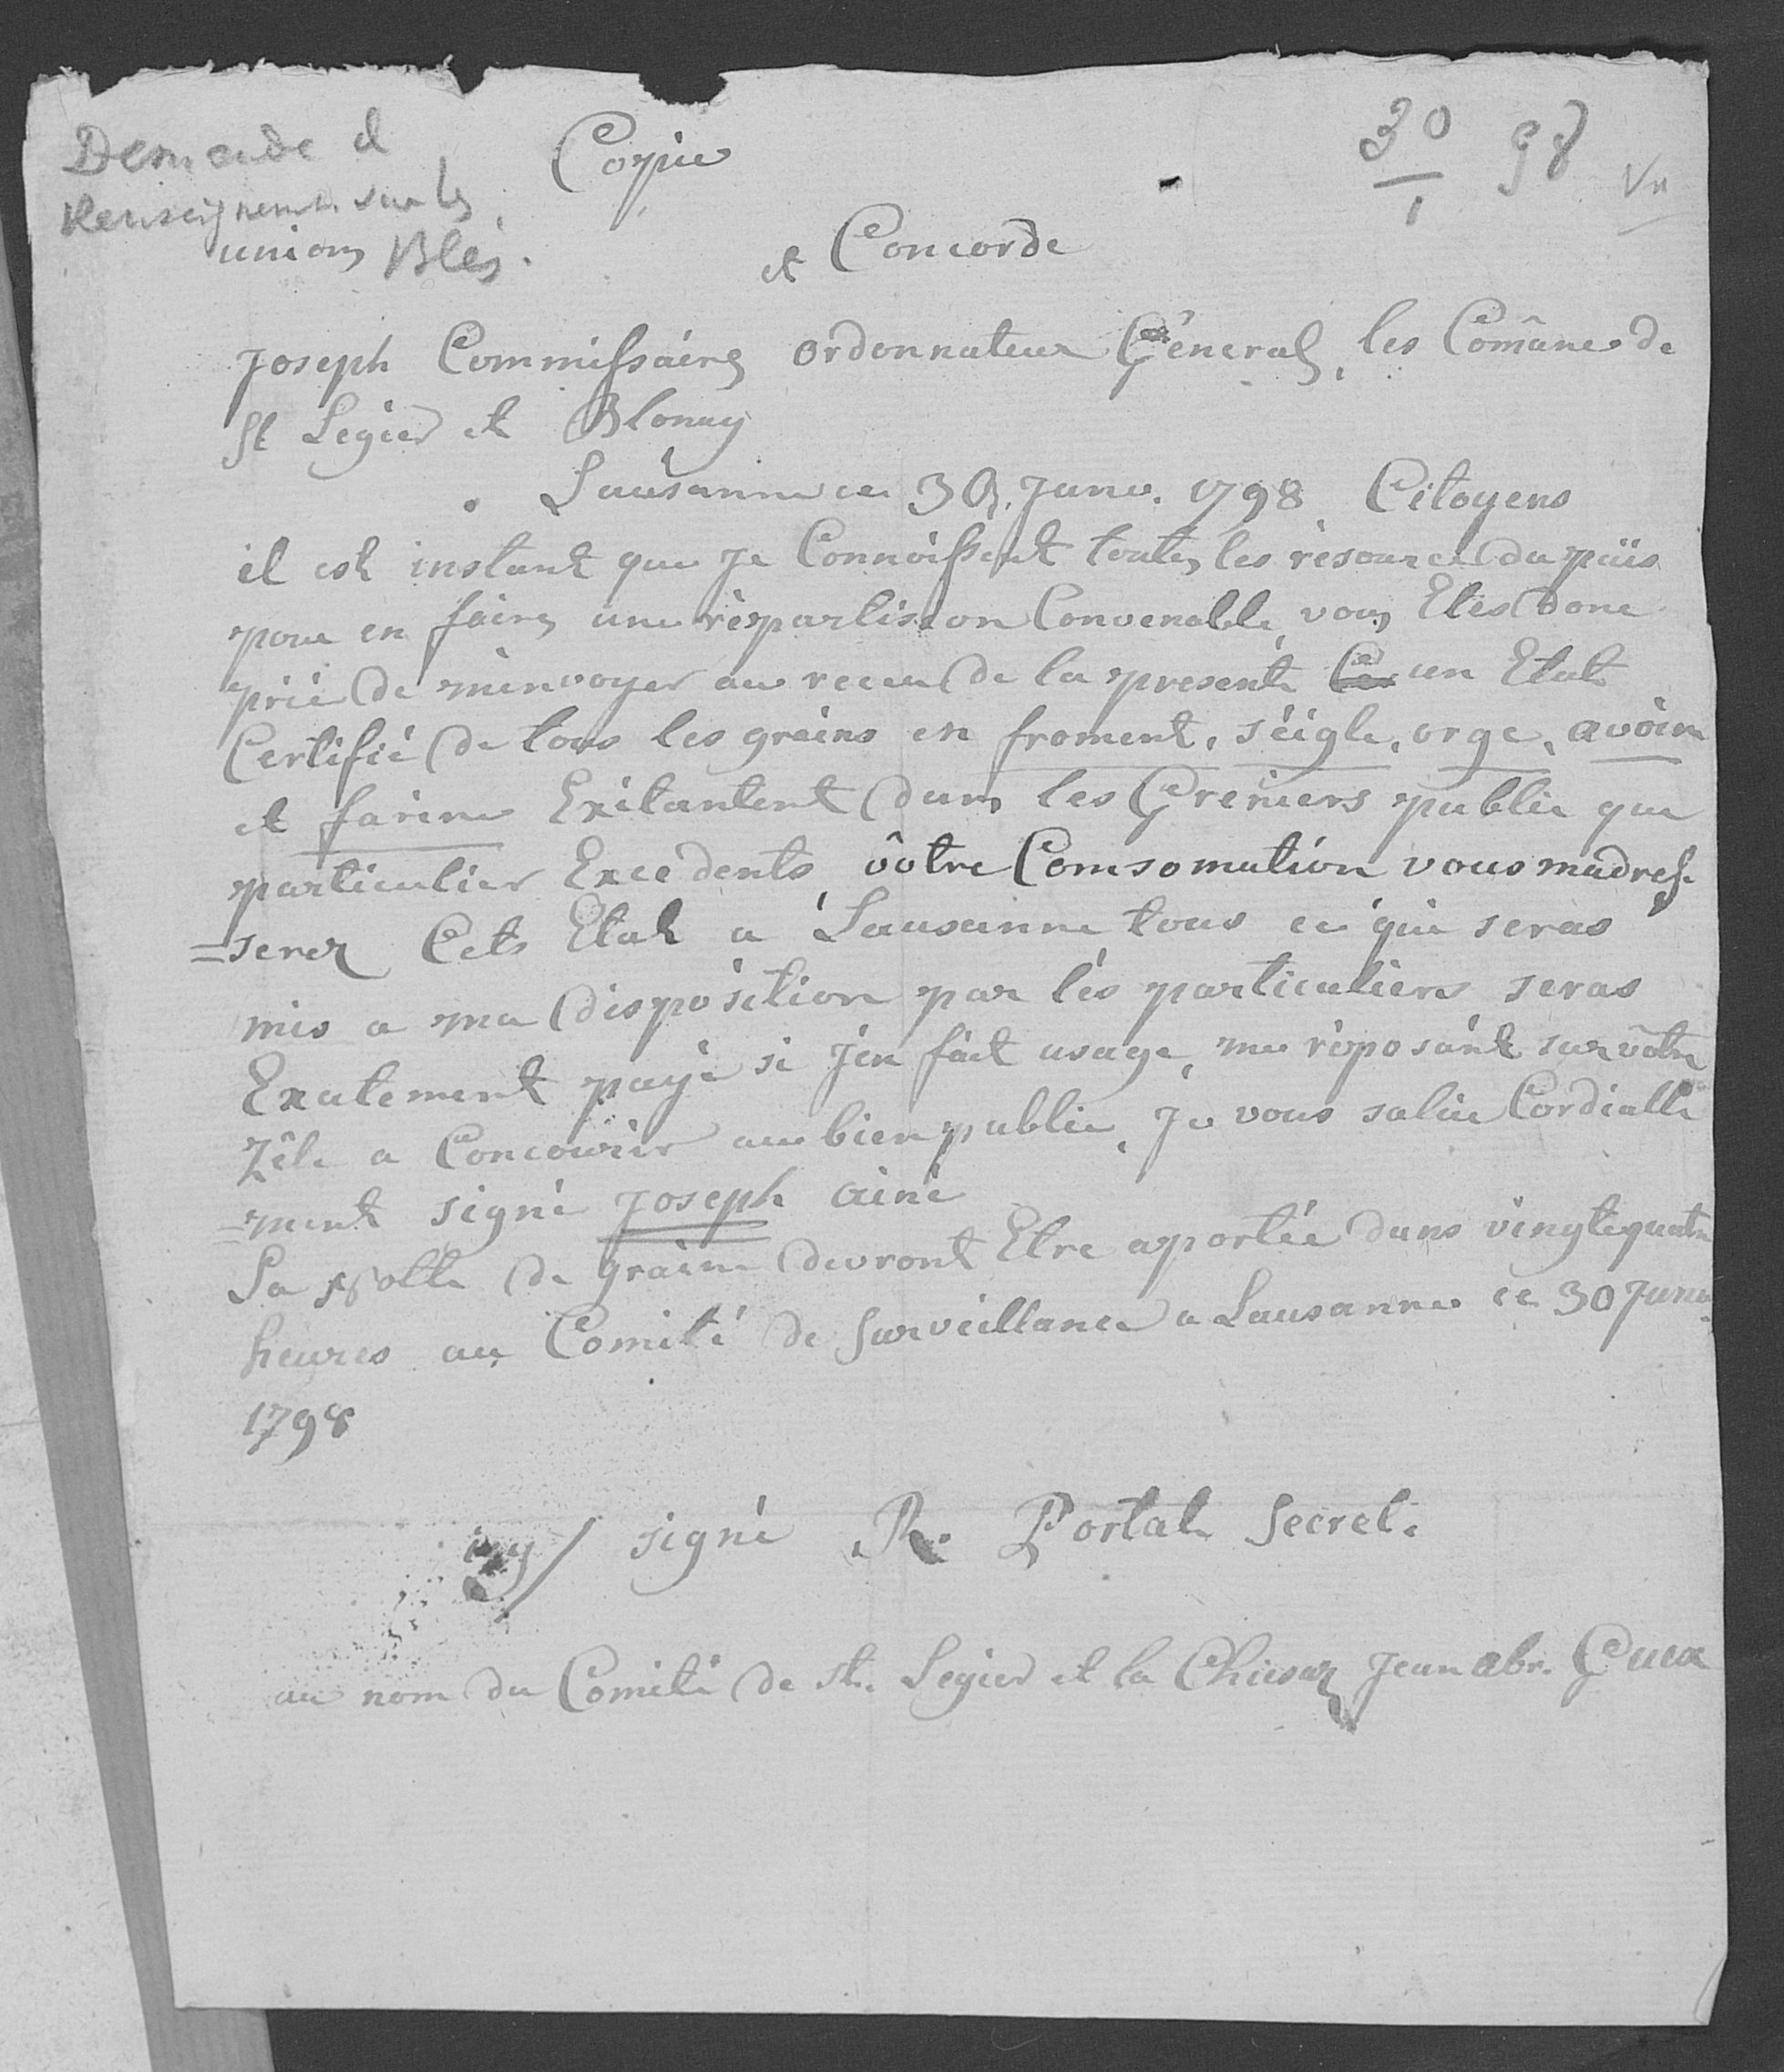 Demande d
Renseignements sur les
Blés.
Copie
30 98
1
union et Concorde
Joseph Commissaire ordonnateur Géneral, les Comûnes de
St Légier et Blonay
Lausanne ce 30. Janv. 1798 Citoyens
il est instant que Je Connoissent toutes les résource du païs
pour en faire une répartision Convenable, vous Etes donc
prié de m'envoyer au receu de la presente un Etat
Certifié de tous les grains en froment, séigle, orge, avoine
et farine Exitantent dans les Greniers public que
particulier Excedents, vôtre Comsomation vous madres-
=serez Cets Etat a Lausanne tous ce qui seras
mis a ma disposition par les particuliers seras
Exatement payé si j'en fait usage, me réposant sur vôtre
Zêle a Concourir au bien public, Je vous salue Cordialle
=ment signé Joseph ainé
La note de graine devront Etre aportée dans vingtequatre
heures au Comité de Surveillance a Lausanne ce 30 Janv.
1798
signé R. Portal Secret.
au nom du Comité de St. Legier et la Chiesaz Jean abr. Guex